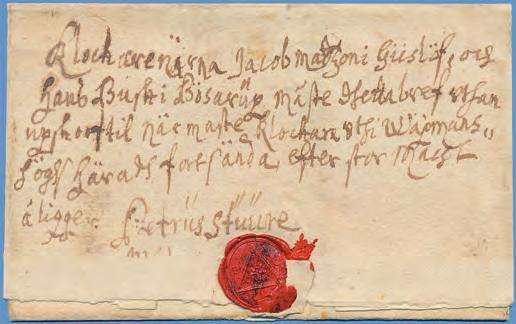 Klockarenärna Jacob madzon i Giislöf, och
Hans Buski Bösarüp måste dhetta bref uthan
upskoff til närmaste Klockare uthi Wäomans„
högs härads fortsända efter stor macht
å ligger.
Petrüs Stüüre